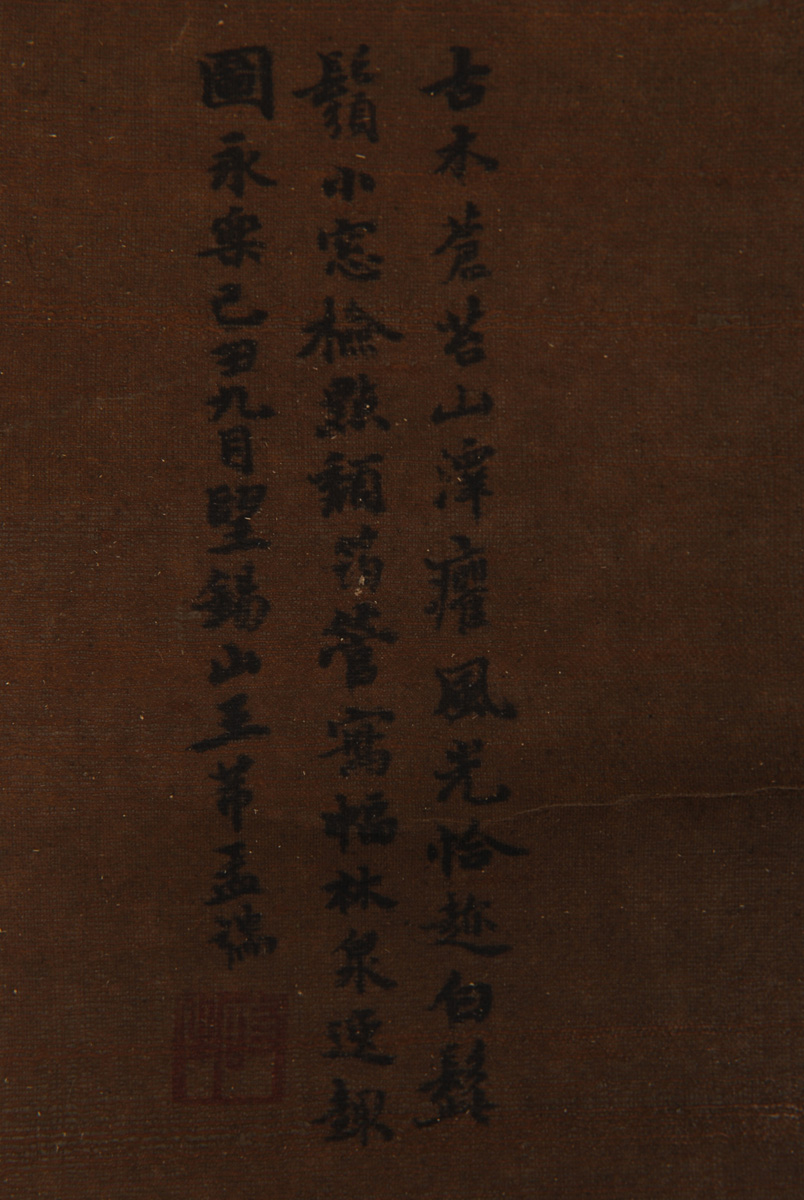 古木蒼苔山澤癯風光恰趂白髭
鬚小窓檢點頹筠管寫幅林泉逸趣
圖永樂己丑九月朢錫山王芾孟端